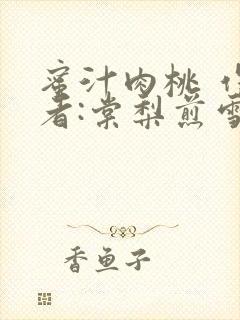 蜜汁肉桃 作
者:棠梨煎雪
香鱼子